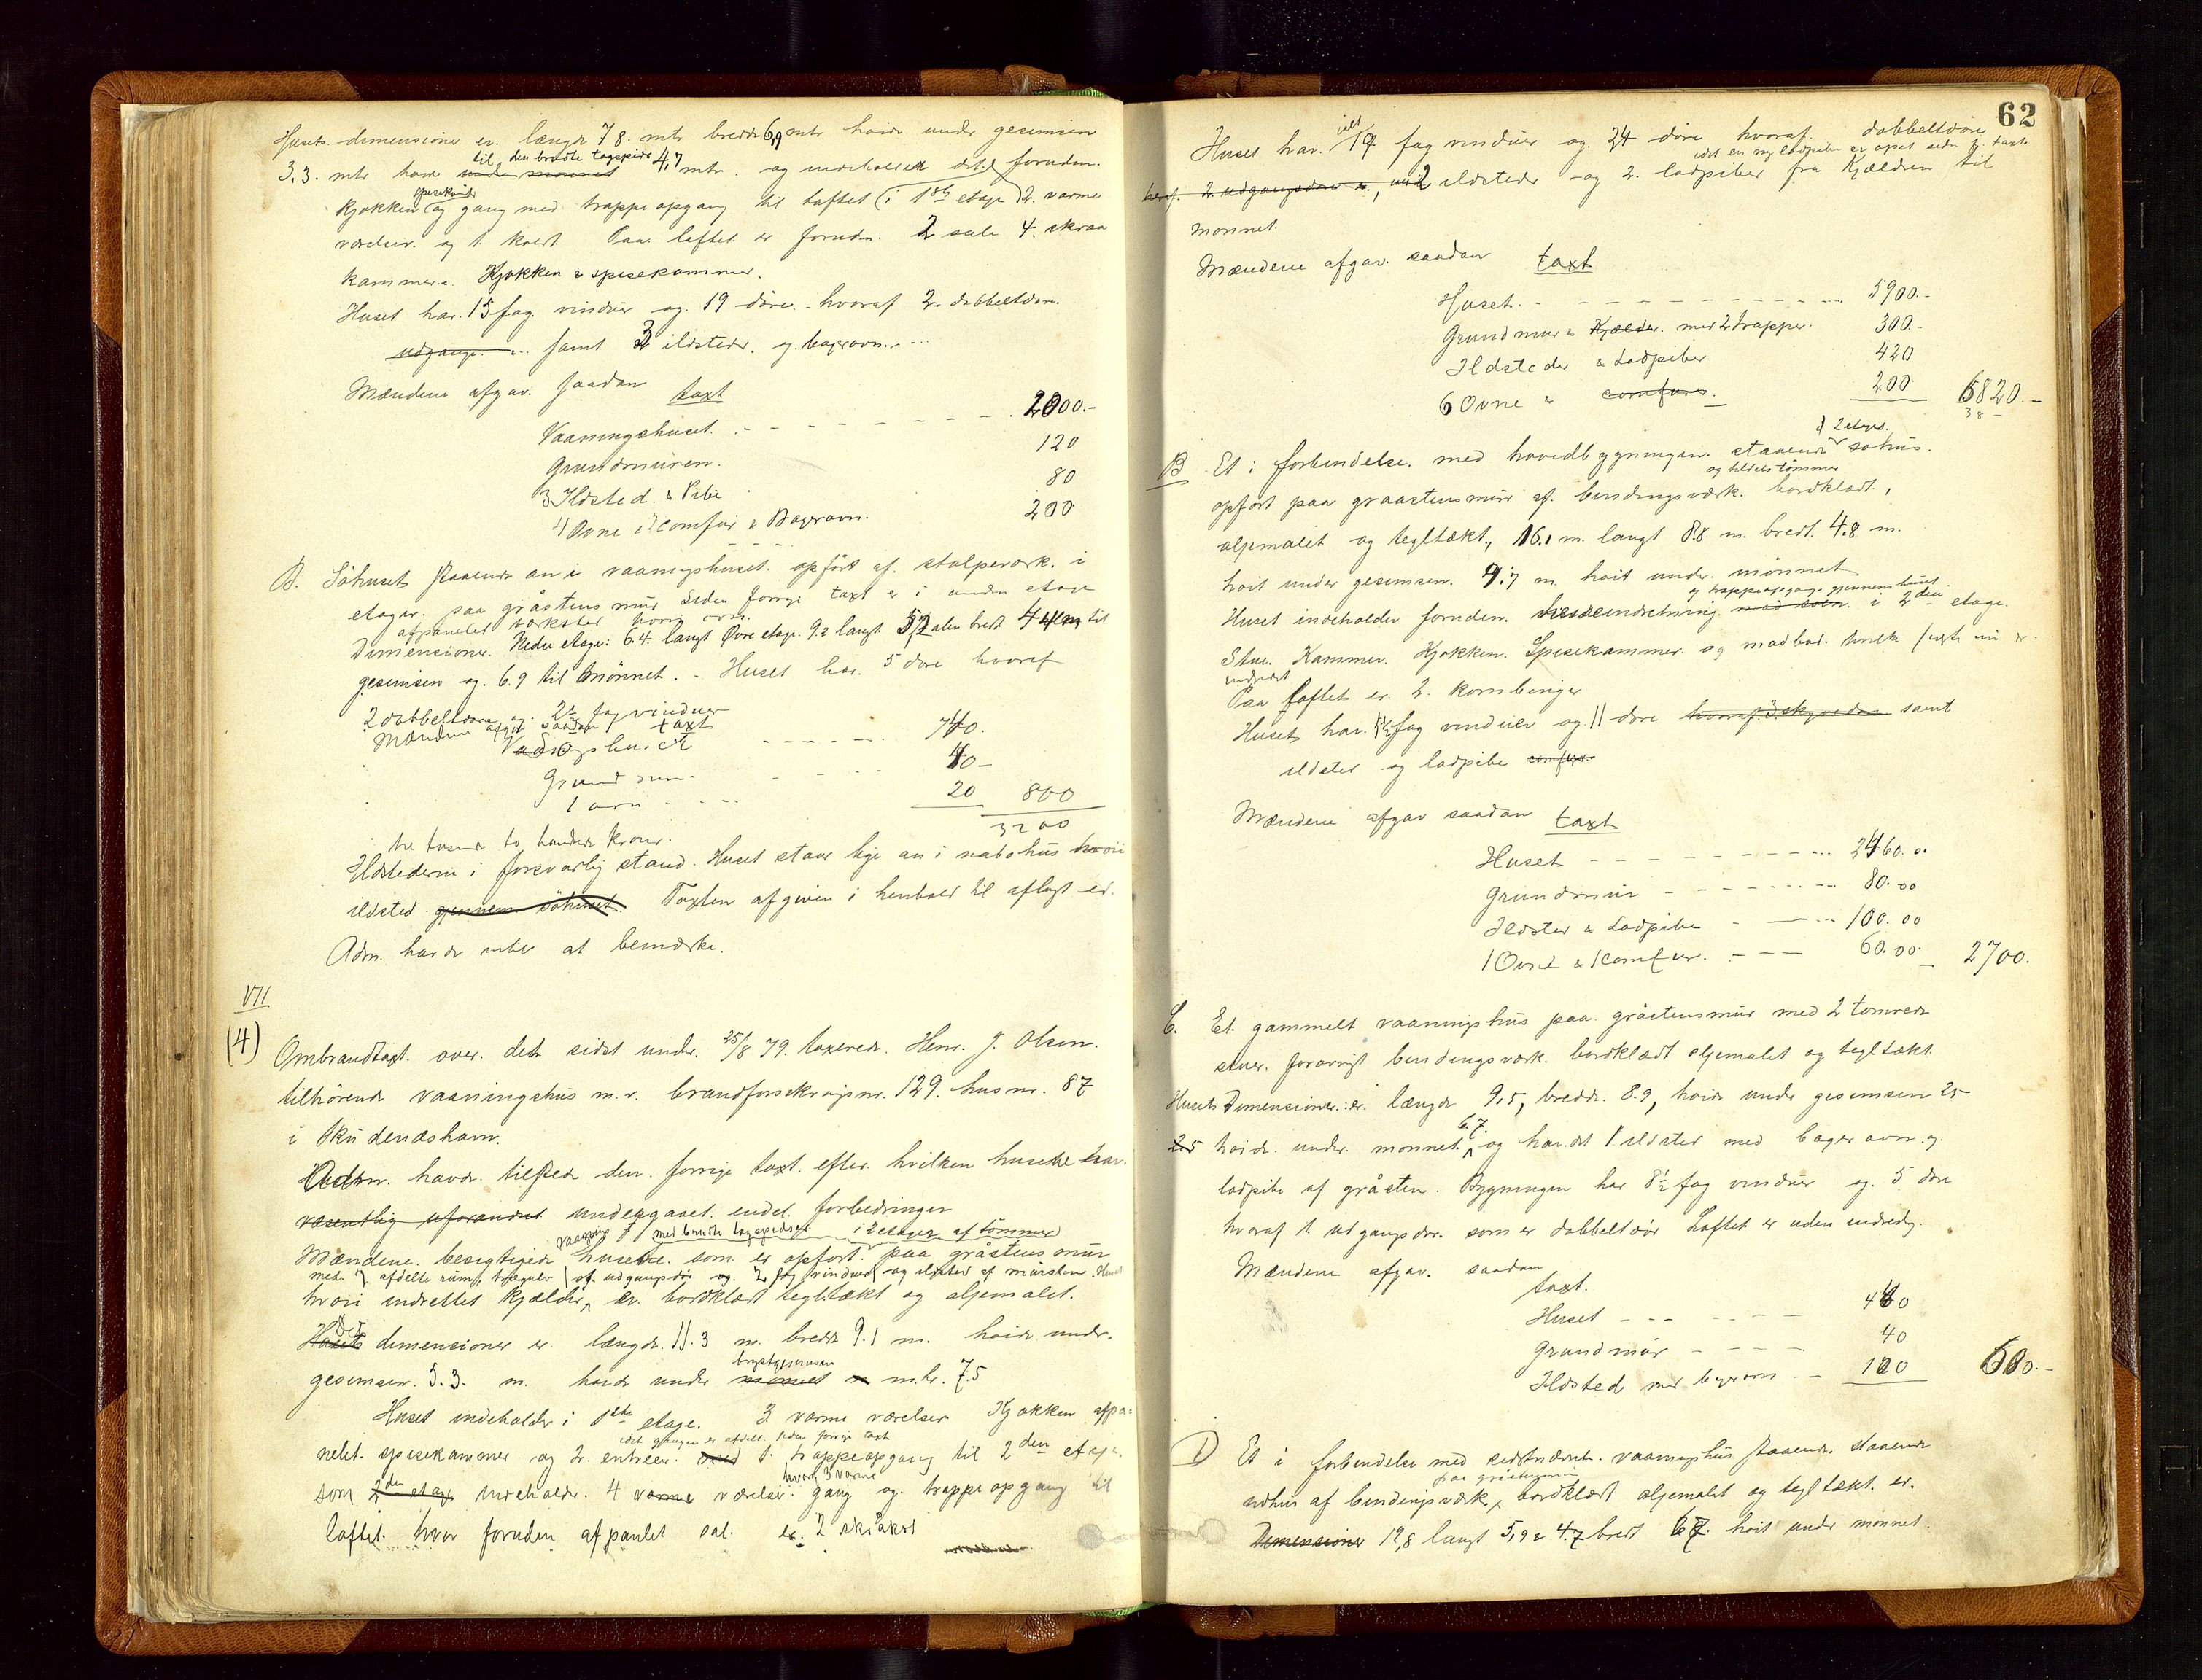 Husets dimensioner er længde 7 8. mtr bredde 6,9 mtr høide under gesimsen
til den brudte tagspids 4,7
3.3. mtr høide mtr. og indeholder det foruden
spisekammer
Kjøkken og gang med trappeopgang til loftet (i 1ste etage) 2. varme
værelser og 1 koldt. Paa loftet er foruden 2 sale 4. skraa
kammere. Kjøkken & spisekammer.
Huset har 15 fag vinduer og 19 døre. hvoraf 2. dobbeltdøre.
udgange samt 3 ildsteder og bagerovn
Mændene afgav saadan taxt
Vaaningshuset. 2000.-
Grundmuren. 120
3 Ildsted. & Pibe 80
4 Ovne & Comfur & Bagerovn. 200
B. Söhuset staaende an i vaaningshuset. opført af stolpeværk. i
etager. paa gråstens mur Siden forrige taxt er i anden etage
afpanelet værksted
Dimensioner. Nedre etage: 6.4. langt Øvre etage. 9.2 langt 5,2 alen bredt 4 til
gesimsen og. 6.9 til Mønnet. - Huset har. 5 døre hvoraf
2 dobbeltdøre og 2½ fag vinduer
Mændene afgav saadan taxt
740.
Grundmur 40-
1 ovn 20 800
3200
tre tusinde to hundrede kroner.
Ildstederne i forsvarlig stand. Huset staar lige an i nabohus
ildsted gjennem söhuset. Taxten afgiven i henhold til aflagt ed.
Adm. havde intet at bemærke.
VII
(4) Ombrandtaxt. over. det sidst under. 25/8 79. taxerede. Henr. J. Olsen.
tilhörende vaaningshus m.v. brandforsikringsnr. 129. husnr. 87
i Skudenæshavn.
Adm. havde tilstede den. forrige taxt. efter. hvilken husene har.
væsentlig uforandret undergaaet endel forbedringer
vaaning med brudte tagspidser i 2 etager af tömmer
Mændene. besigtigede husene. som er opført. paa gråstens mur
med afdelte rum, udgangsdør og. 2 fag vinduer og ildsted af mursten. Huset
hvori indrettet Kjælder, er. bordklædt tegltækt og oljemalet.
Det
Husets dimensioner er. længde. 11.3 m. bredde 9.1 m. høide under.
brystgesimsen
gesimsen. 3.3. m. høide under mønnet mtr. 7.5
Huset indeholder i 1ste etage. 3 varme værelser Kjøkken afpa=
idet gangen er afdelt. siden forrige taxt
nelet. spisekammer og 2. entreer. med 1. trappeopgang til 2den etage.
hvoraf 3 varme
som 2den etage indeholder. 4 varme værelser. gang og. trappeopgang til
loftet. hvor foruden afpanlet sal. er. 2 skråkot
62
ialt
Huset har. 17 fag vinduer og. 24 døre hvoraf. dobbeltdøre
idet en ny ladpibe er opsat siden f. taxt
heraf. 2 udgangsdøre, med 2 ildsteder og 2. ladpiber fra Kjælderen til
mønnet.
Mændene afgav. saadan taxt
Huset. 5900.-
Grundmur & Kjælder. med 2 trapper. 300.-
Ildsteder & Ladpiber 420
6 Ovne & comfurer. 200 6820.-
i 2 etager.
B Et i forbindelse. med hovedbygningen. staaende söhus.
og tildels tömmer
opført paa graastensmur af. bindingsværk. bordklædt,
oljemalet og tegltækt, 16.1 m. langt 8.8 m. bredt. 4.8 m.
høit under gesimsen. 9.7 m. høit under. mønnet
og trappeopgang gjennem huset.
Huset indeholder foruden. indretning. i 2den etage.
Stue. Kammer. Kjøkken. Spisekammer. og madbod. hvilke sidste nu er.
indredet
Paa loftet er 2. kornbinger
Huset har. fag vinduer og 11 døre samt
ildsted og ladpibe comfur
Mændene afgav saadan taxt
Huset 2460.00
Grundmur 80.00
Ildsted & Ladpibe 100.00
1 Ovn & 1 Comfur. 60.00 2700.
C. Et gammelt vaaningshus paa gråstensmur med 2 tömrede
stuer. forøvrigt bindingsværk. bordklædt oljemalet og tegltækt.
Husets Dimensioner. er. længde 9,5, bredde. 8.9, høide under gesimsen 25
6.7.
25 høide. under. mønnet. og har det 1 ildsted med bagerovn og.
ladpibe af gråsten. Bygningen har 8½ fag vinduer og. 5 døre
hvoraf 1. udgangsdør. som er dobbeltdør Loftet er uden indredn.
Mændene afgav. saadan
taxt.
Huset 460
Grundmur 40
Ildsted med bagerovn 100 600.-
D Et i forbindelse med sidstnævnte. vaaningshus staaende.
paa gråstensmur
udhus af bindingsværk, bordklædt oljemalet og tegltækt. er.
Dimensioner 12,8 langt 5,9 & 4.7 bredt 6 7. høit under mønnet.